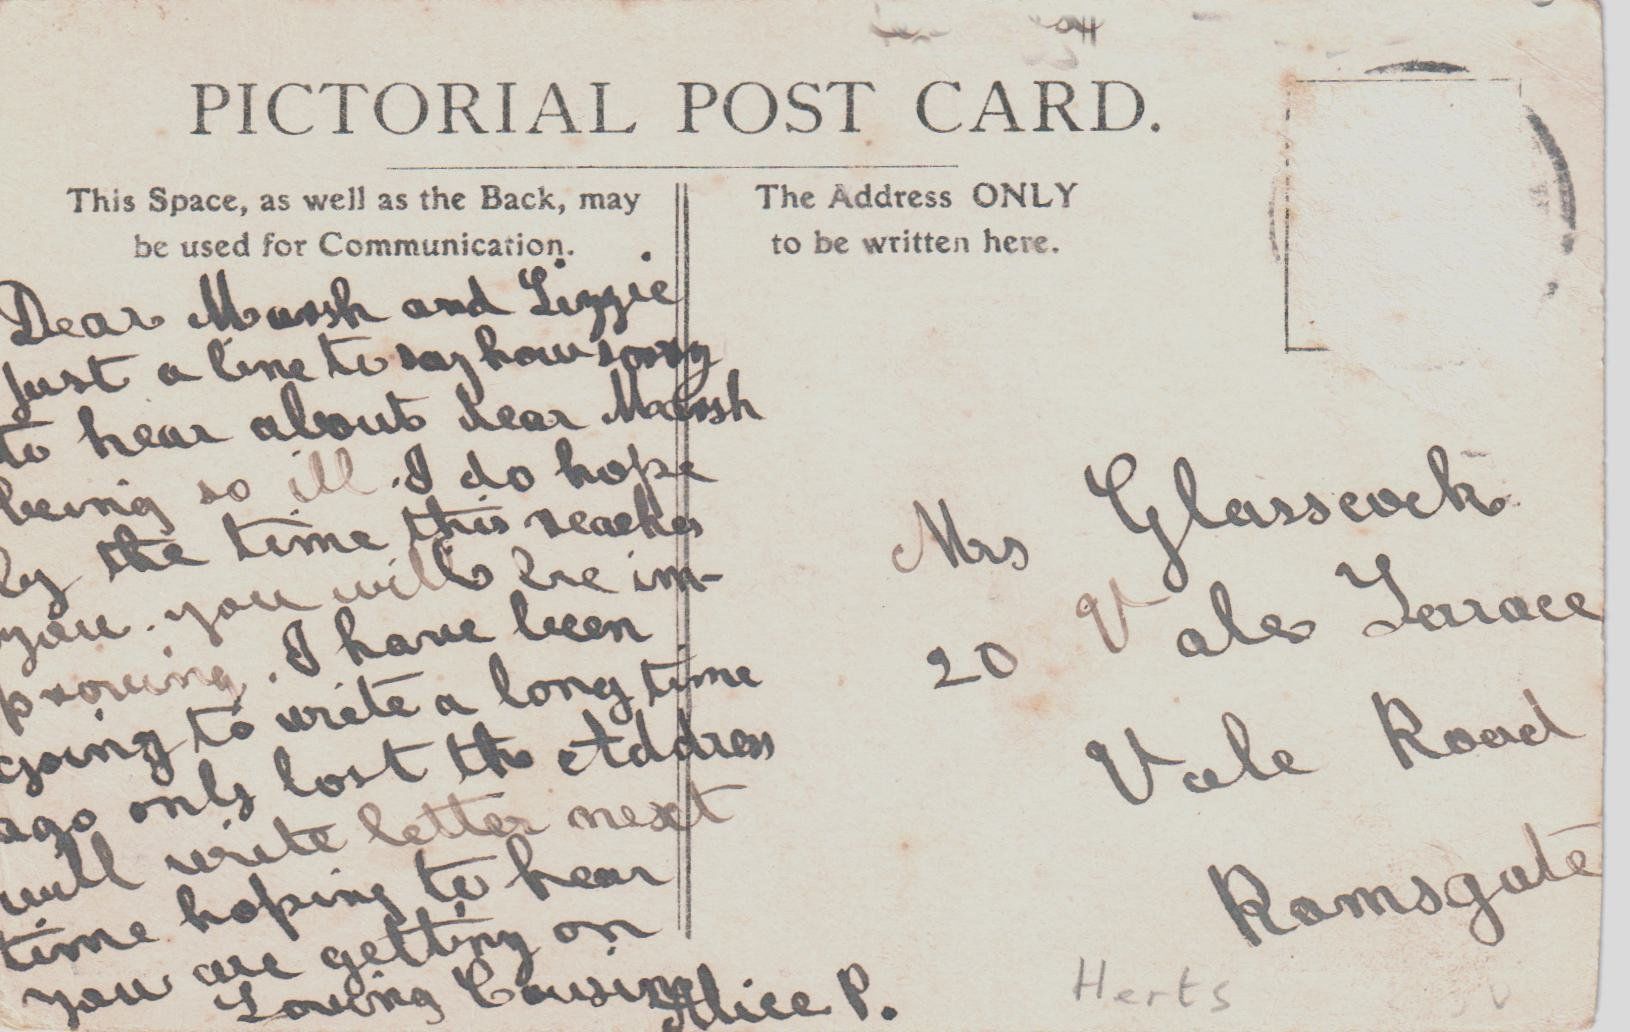 PICTORIAL POST CARD.
This Space, as well as the Back, may
be used for Communication.
The Address ONLY
to be written here.
Dear Marsh and Lizzie
just a line to say how sorry
to hear about dear Marsh
being so ill. I do hope
by the time this reaches
you. you will be im-
proving. I have been
going to write a long time
ago only lost the Address
will write letter next
time hoping to hear
you are getting on
Loving Cousin Alice P.
Mrs Glasscock
20 Vale Terrace
Vale Road
Ramsgate
Herts